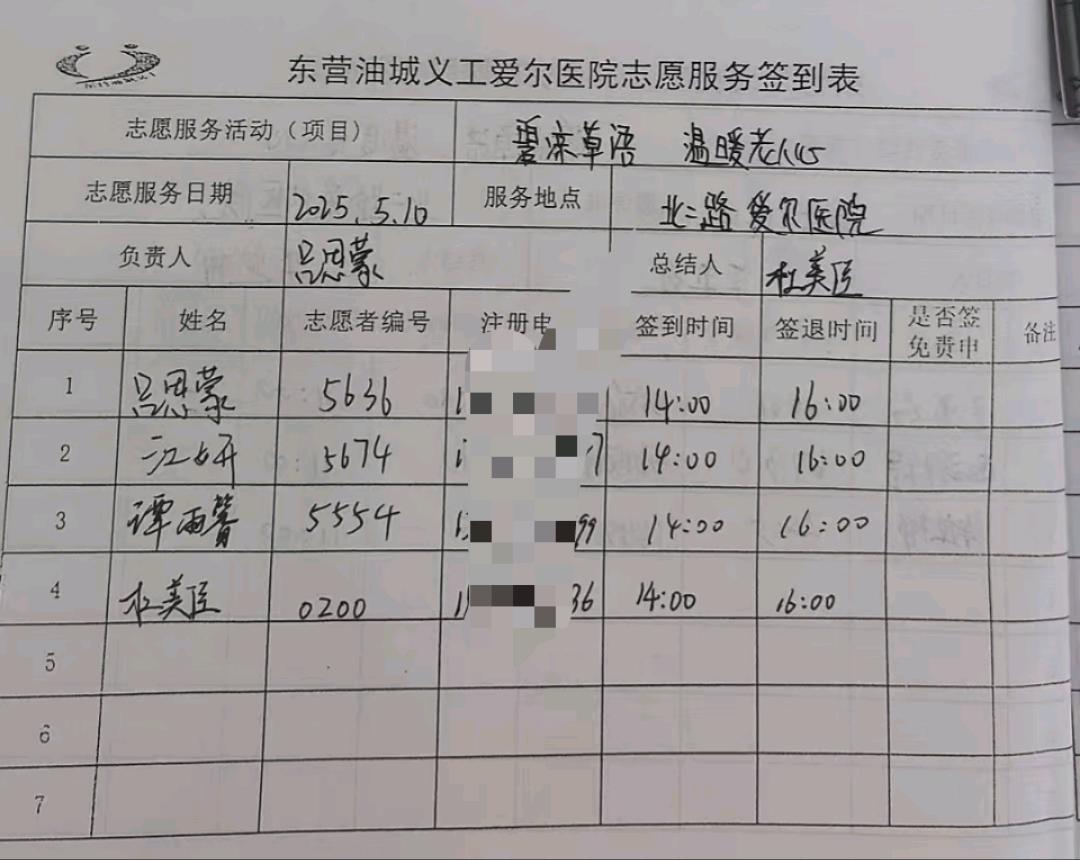 东营油城义工爱尔医院志愿服务签到表
志愿服务活动（项目） 温暖老人心
志愿服务日期 2025.5.10 服务地点 北二路 爱尔医院
负责人 吕思蒙 总结人 杜美臣
序号 姓名 志愿者编号 注册电 签到时间 签退时间 是否签免责申 备注
1 吕思蒙 5636 1 14:00 16:00
2 江妍 5674 1 7 14:00 16:00
3 谭雨馨 5554 99 14:00 16:00
4 杜美臣 0200 1 36 14:00 16:00
5
6
7